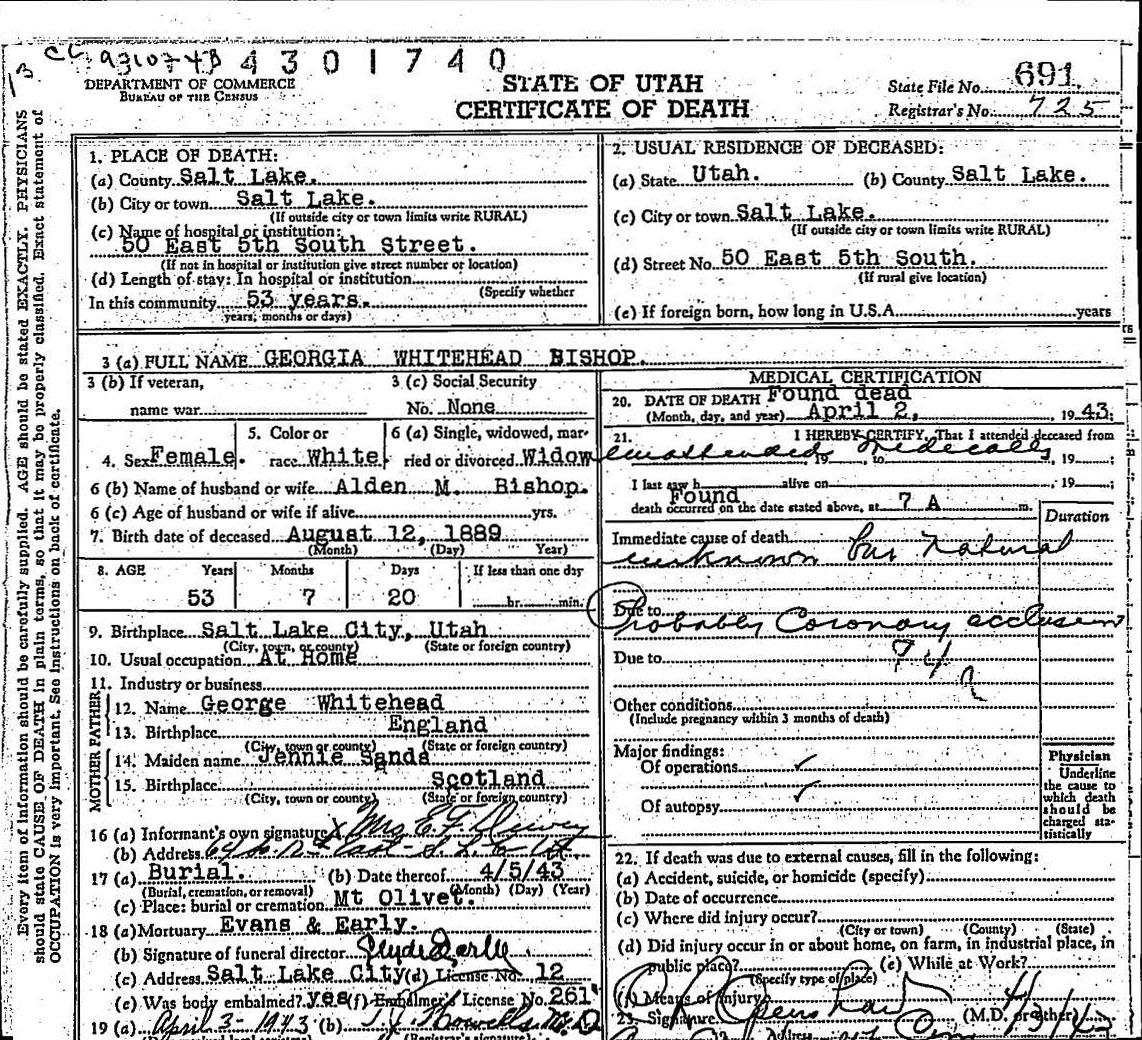 4301740
DEPARTMENT OF COMMERCE
BUREAU OF THE CENSUS
STATE OF UTAH
CERTIFICATE OF DEATH
State File No. 691
Registrar's No. 725
Every item of information should be carefully supplied. AGE should be stated EXACTLY. PHYSICIANS
should state CAUSE OF DEATH in plain terms, so that it may be properly classified. Exact statement of
OCCUPATION is very important. See instructions on back of certificate.
1. PLACE OF DEATH:
(a) County Salt Lake.
(b) City or town Salt Lake.
(If outside city or town limits write RURAL)
(c) Name of hospital or institution:
50 East 5th South Street.
(If not in hospital or institution give street number or location)
(d) Length of stay: In hospital or institution
(Specify whether
In this community 53 years.
years, months or days)
2. USUAL RESIDENCE OF DECEASED:
(a) State Utah. (b) County Salt Lake.
(c) City or town Salt Lake.
(If outside city or town limits write RURAL)
(d) Street No. 50 East 5th South.
(If rural give location)
(e) If foreign born, how long in U.S.A. years
3 (a) FULL NAME GEORGIA WHITEHEAD BISHOP.
3 (b) If veteran, 3 (c) Social Security
name war No. None
5. Color or 6 (a) Single, widowed, mar-
4. Sex Female. race White ried or divorced Widow
6 (b) Name of husband or wife Alden M. Bishop.
6 (c) Age of husband or wife if alive yrs.
7. Birth date of deceased August 12, 1889
(Month) (Day) Year)
8. AGE Years Months Days If less than one day
53 7 20 hr. min.
9. Birthplace Salt Lake City, Utah
(City, town, or county) (State or foreign country)
10. Usual occupation At Home
11. Industry or business
FATHER
12. Name George Whitehead
13. Birthplace England
(City, town or county) (State or foreign country)
MOTHER
14. Maiden name Jennie Sands
15. Birthplace Scotland
(City, town or county) (State or foreign country)
16 (a) Informant's own signature X Mrs E F Dewey
(b) Address
17 (a) Burial. (b) Date thereof 4/5/43
(Burial, cremation, or removal) (Month) (Day) (Year)
(c) Place: burial or cremation Mt Olivet.
18 (a) Mortuary Evans & Early.
(b) Signature of funeral director Clyde Early
(c) Address Salt Lake City (d) License No. 12
(e) Was body embalmed? yes (f) Embalmer's License No. 261
19 (a) April 3-1943 (b) Howells M.D
MEDICAL CERTIFICATION
20. DATE OF DEATH Found dead
(Month, day, and year) April 2, 1943;
21. I HEREBY CERTIFY, That I attended deceased from
unattended medically 19 , to , 19 ;
I last saw h alive on , 19 ;
Found
death occurred on the date stated above, at 7 A m.
Duration
Immediate cause of death
unknown but natural
Due to
Probably Coronary occlusion
Due to
Other conditions
(Include pregnancy within 3 months of death)
Major findings:
Of operations ✓
Of autopsy ✓
Physician
Underline
the cause to
which death
should be
charged sta-
tistically
22. If death was due to external causes, fill in the following:
(a) Accident, suicide, or homicide (specify)
(b) Date of occurrence
(c) Where did injury occur?
(City or town) (County) (State)
(d) Did injury occur in or about home, on farm, in industrial place, in
public place? (e) While at Work?
(Specify type of place)
(f) Means of injury
23. Signature (M.D. or other) 4/3/43
Address